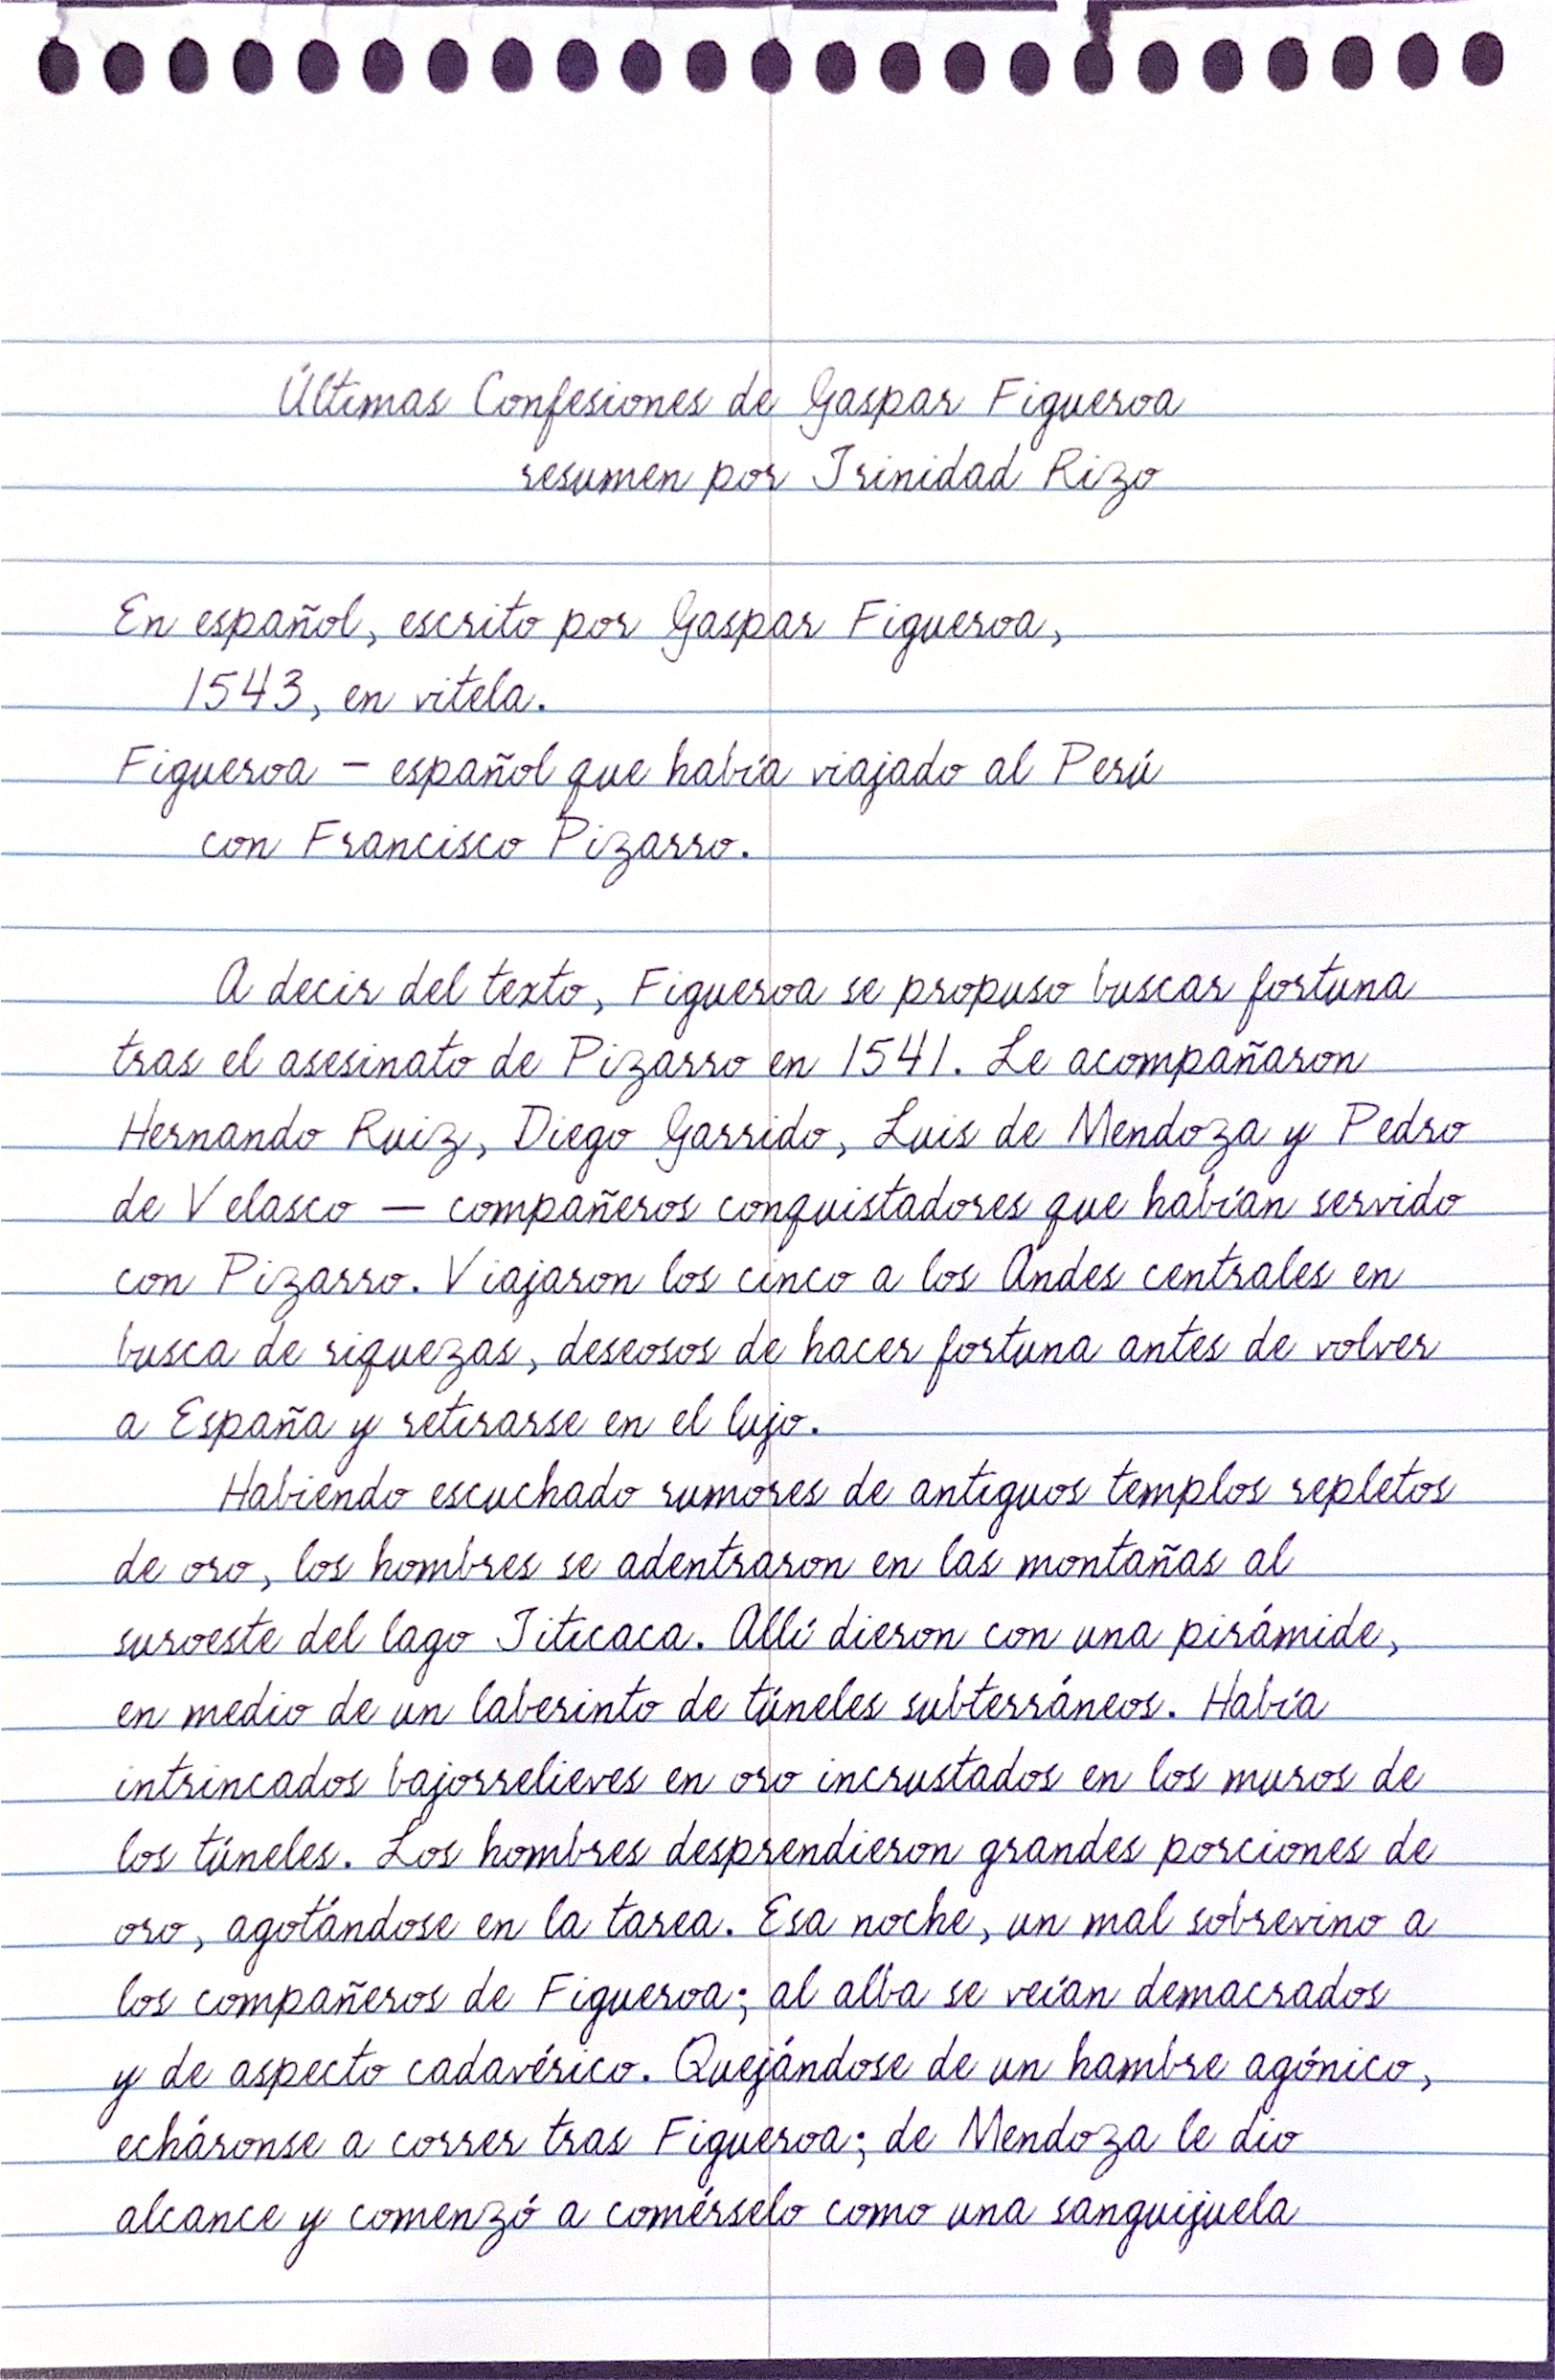 Últimas Confesiones de Gaspar Figueroa
resumen por Trinidad Rizo
En español, escrito por Gaspar Figueroa,
1543, en vitela.
Figueroa – español que había viajado al Perú
con Francisco Pizarro.
A decir del texto, Figueroa se propuso buscar fortuna
tras el asesinato de Pizarro en 1541. Le acompañaron
Hernando Ruiz, Diego Garrido, Luis de Mendoza y Pedro
de Velasco — compañeros conquistadores que habían servido
con Pizarro. Viajaron los cinco a los Andes centrales en
busca de riquezas, deseosos de hacer fortuna antes de volver
a España y retirarse en el lujo.
Habiendo escuchado rumores de antiguos templos repletos
de oro, los hombres se adentraron en las montañas al
suroeste del lago Titicaca. Allí dieron con una pirámide,
en medio de un laberinto de túneles subterráneos. Había
intrincados bajorrelieves en oro incrustados en los muros de
los túneles. Los hombres desprendieron grandes porciones de
oro, agotándose en la tarea. Esa noche, un mal sobrevino a
los compañeros de Figueroa; al alba se veían demacrados
y de aspecto cadavérico. Quejándose de un hambre agónico,
echáronse a correr tras Figueroa; de Mendoza le dio
alcance y comenzó a comérselo como una sanguijuela